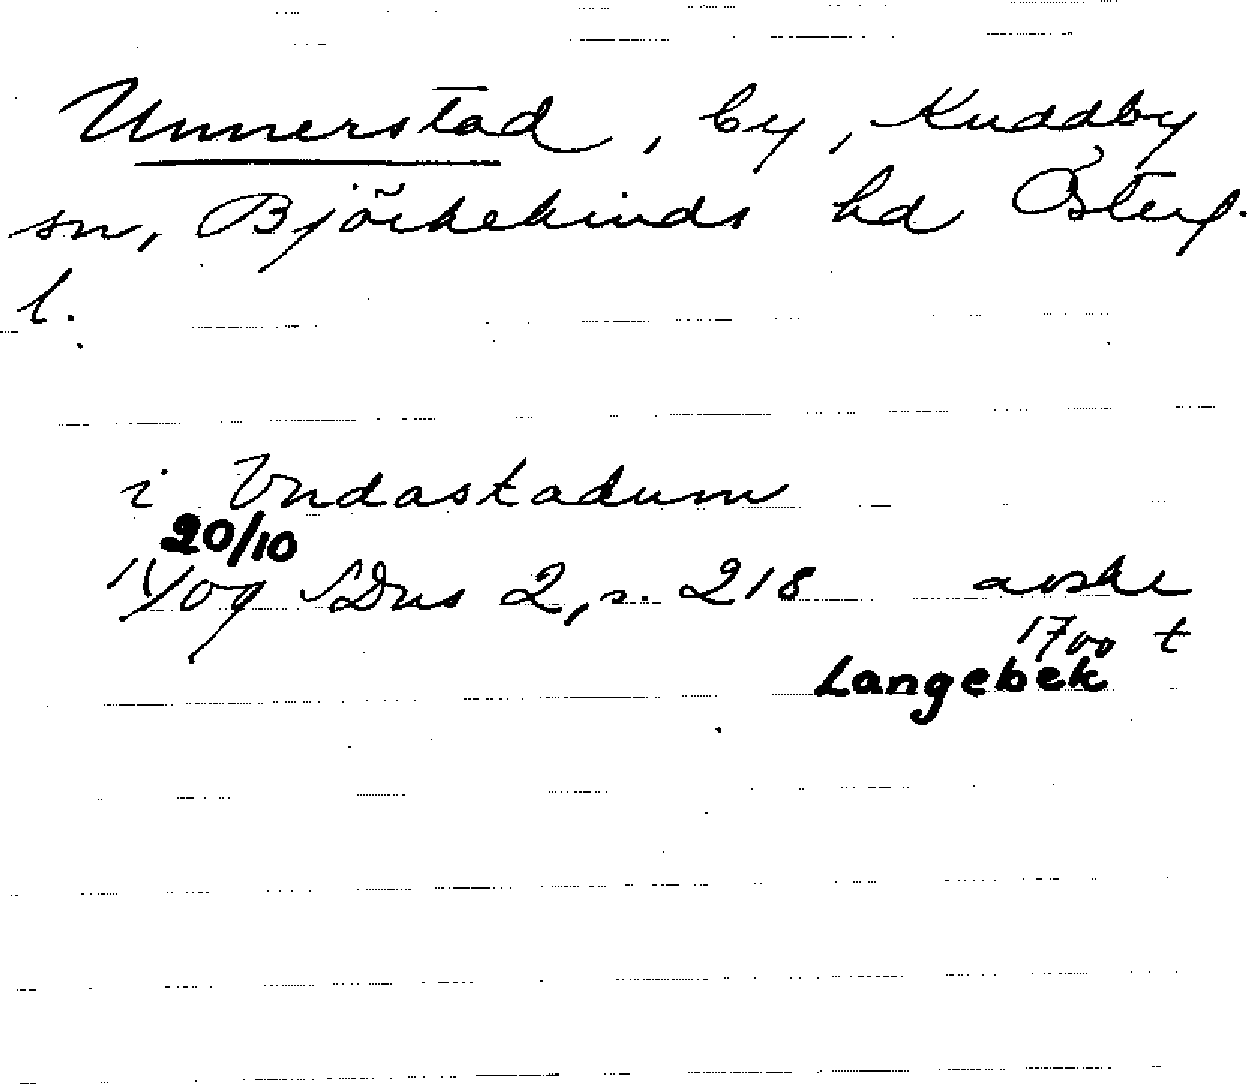 Unnerstad, by, Kuddby
sn, Björkekinds hd Österg.
l.
i Vndastadum
20/10
1409 SDns 2, s. 218 avskr
1700 t
Langebek